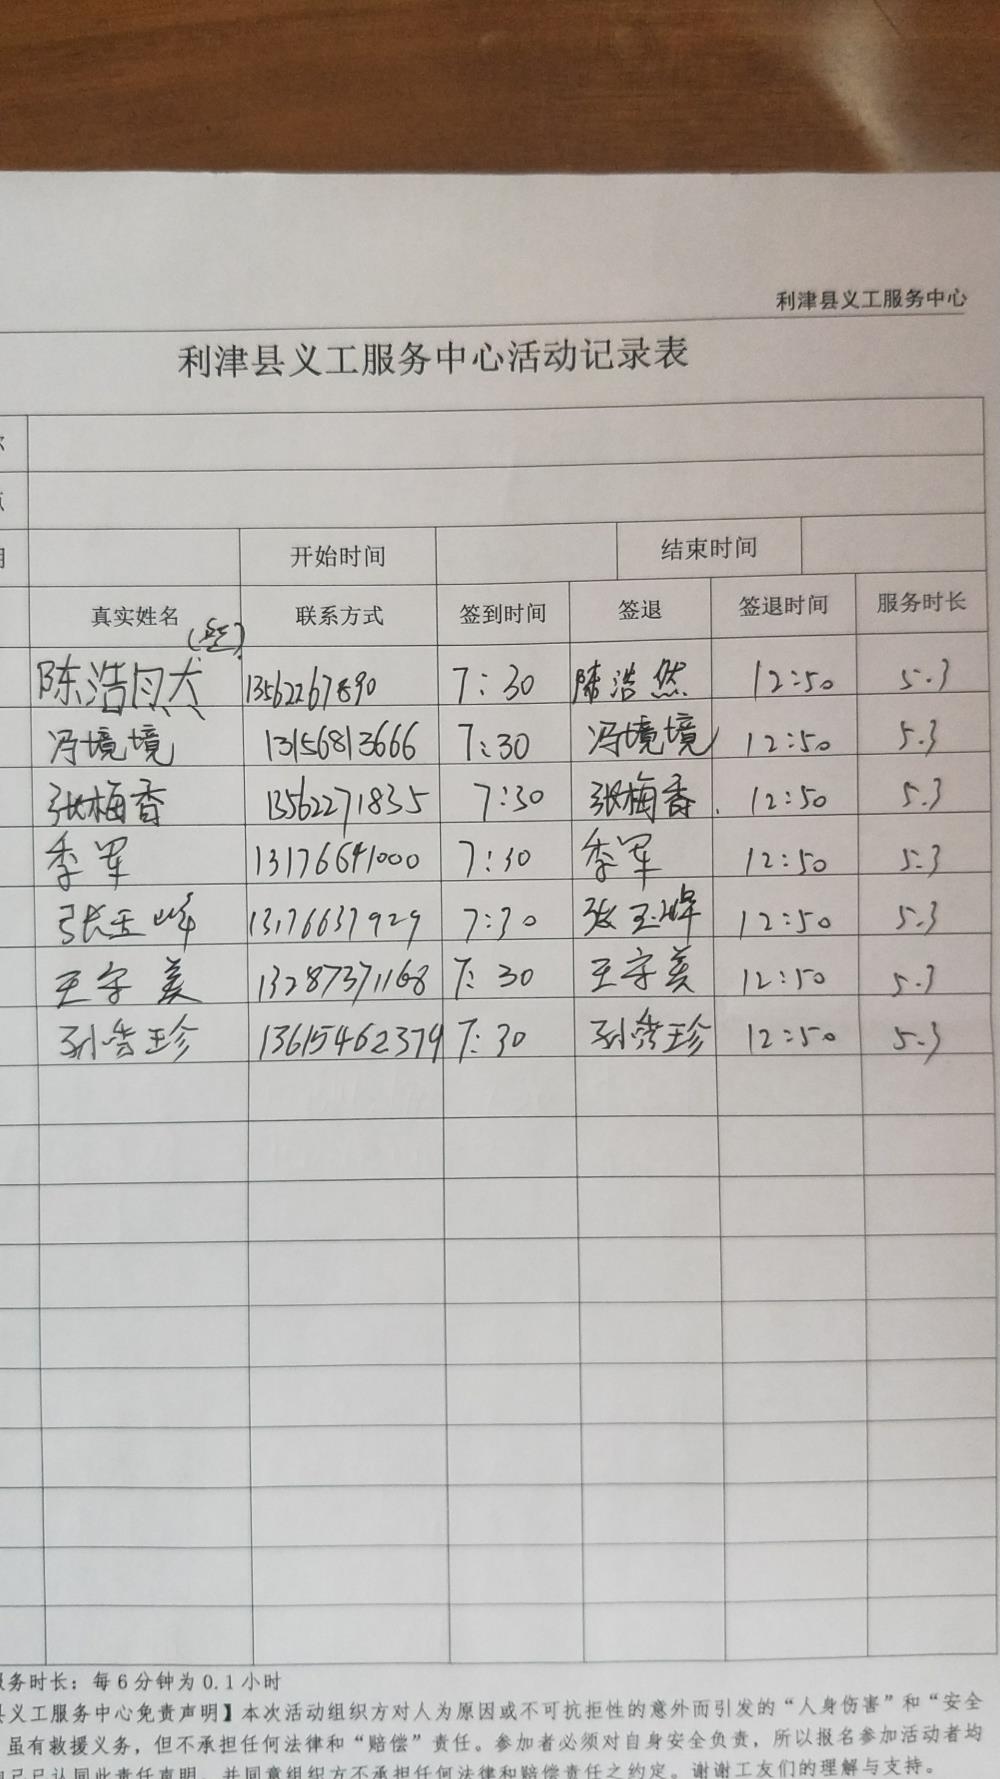 利津县义工服务中心
利津县义工服务中心活动记录表
开始时间 结束时间
真实姓名 联系方式 签到时间 签退 签退时间 服务时长
陈浩然 13562267890 7:30 陈浩然 12:50 5.3
冯境境 13156813666 7:30 冯境境 12:50 5.3
张梅香 13562271835 7:30 张梅香 12:50 5.3
季军 13176641000 7:30 季军 12:50 5.3
张玉峰 13176637929 7:30 张玉峰 12:50 5.3
王守美 13287371168 7:30 王守美 12:50 5.3
孙秀珍 13615462379 7:30 孙秀珍 12:50 5.3
服务时长：每6分钟为0.1小时
县义工服务中心免责声明】本次活动组织方对人为原因或不可抗拒性的意外而引发的“人身伤害”和“安全
虽有救援义务，但不承担任何法律和“赔偿”责任。参加者必须对自身安全负责，所以报名参加活动者均
自己已认同此责任声明，并同意组织方不承担任何法律和赔偿责任之约定。谢谢工友们的理解与支持。